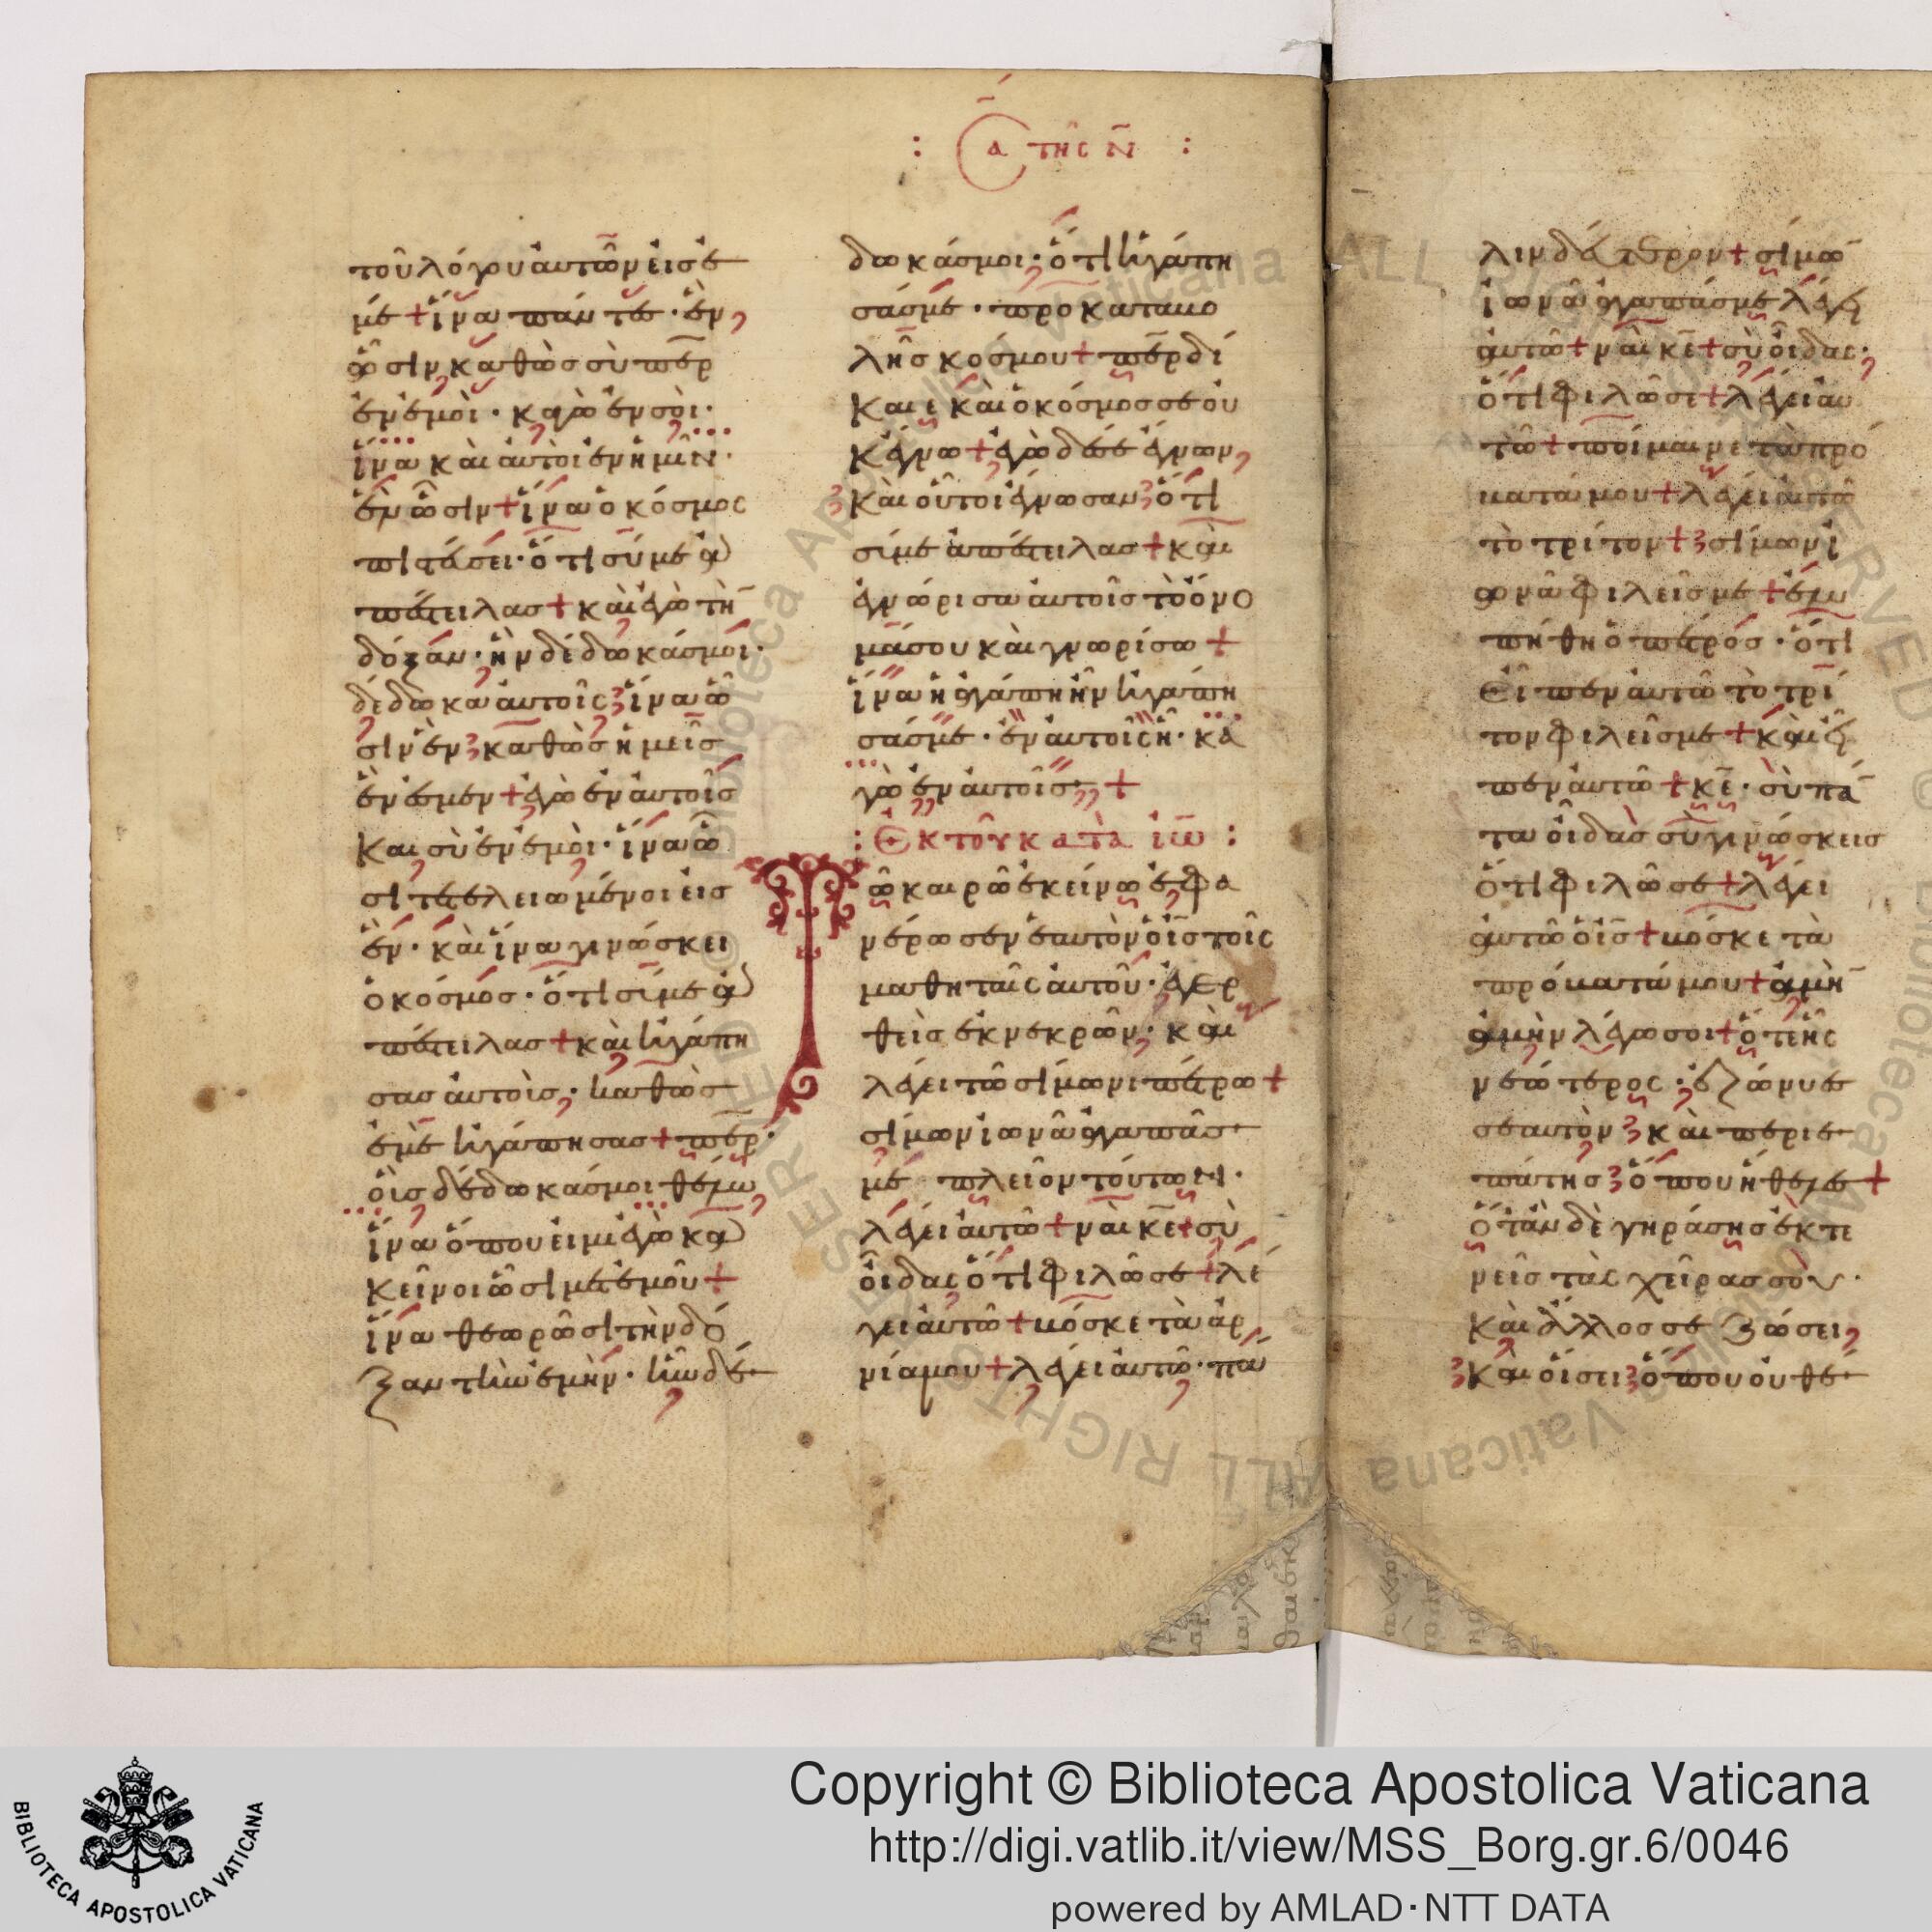 : α τῆς Ν̄ :
τοῦ λόγου ἀυτῶν εἰς ἐ
μέ + ἵνα πάντες · ἓν
ὦσιν καθὼς σὺ περ
ἐν ἐμοὶ · καγὼ ἐν σοὶ ·
ἵνα καὶ αὐτοὶ ἐν ἡμῖν ·
ἓν ὦσιν + ἵνα ὁ κόσμος
πιστέσει · ὅτι σύ με ἀ
πέστειλας + καὶ ἐγὼ τὴ̄
δόξαν · ἣν δέδωκάς μοι ·
δέδωκα αυτοῖς ἵνα ὦ
σιν ἓν καθὼς ἡμεῖς
ἓν ἐσμεν + ἐγὼ ἐν ἀυτοῖς
Και σὺ ἐν ἐμοὶ · ἵνα ὦ
σι τετελειωμένοι εἰς
ἕν · κὰι ἵνα γινώσκει
ὁ κόσμος · ὅτι σύ με ἀ
πέστειλας + κὰι ἠγάπη
σας ἀυτοὶς · καθὼς
ἐμὲ ἠγάπησας + περ ·
οὓς δέδωκάς μοι θέλω
ἵνα ὅπου ειμι ἐγὼ κα
κεῖνοι ὦσι μετ ἐμοῦ +
ἵνα θεωρῶσι τὴν δό
ξαν τὴν ἐμὴν · ἣν δέ
δωκάς μοι · ὅτι ἠγάπη
σάς με · προ καταμο
λῆς κοσμου + περ δί
Και ε καὶ ὁ κόσμος σε ου
κ έγνω + ἐγὼ δέ σε έγνων
κὰι οὗτοι έγνωσαν ὅτι
σύ με ἀπέστειλας + κὰι
ἐγνώρισα ἀυτοῖς τὸ όνο
μά σου κὰι γνωρίσω +
ἵνα ἡ ἀγάπη ἣν ἠγάπη
σάς με · ἐν ἀυτοῖς ῆ · κἀ
γὼ ἐν ἀυτοῖς +
: Ἐκ τοῦ κατὰ ἰω̄ :
Τῶ καιρῶ ἐκείνω ἐφα
νέρωσεν ἑαυτὸν ὁ ῑς τοῖς
μαθηταῖς ἀυτοῦ · ἐγερ
θεὶς ἐκ νεκρῶν · κὰι
λέγει τῶ σίμωνι πέτρω +
σίμων ἰωνᾶ ἀγαπᾶς
μέ πλεῖον τούτων ·
λέγει ἀυτῶ + νὰι κ̄ε + σὺ
οἶδας ὅτι φιλῶ σε + λέ
γει ἀυτῶ + μόσκε τὰ ἀρ
νία μου + λέγει ἀυτῶ · πά
λιν δέυτερον + σίμω̄
ἰωνᾶ ἀγαπάς με λέγει
ἀυτῶ + νὰι κ̄ε + σὺ οἶδας ·
ὅτι φιλῶ σε + λέγει αυ
τῶ + ποίμαινε τὰ πρό
ματά μου + λέγει ἀυτῶ
τὸ τρίτον + σίμων ἰ
ωνᾶ φιλεῖς με + ἐλυ
πήθη ὁ πέτρός · ὅτι
εἶπεν ἀυτῶ τὸ τρί
τον φιλεῖς με + κὰι εἶ
πεν ἀυτῶ + κ̄ε · σὺ πά̄
τα οἶδας σὺ γινώσκεις
ὅτι φιλῶ σε + λέγει
ἀυτῶ ὁ ῑς + μόσκε τὰ
πρόματά μου + ἀμὴ̄
ἀμὴν λέγω σοι + ὅτε ῆς
νεώτερος · ἐζώνυε
σεαυτὸν κὰι περιε
πάτης ὅπου ἤθελε +
ὅταν δὲ γηράσης ἐκτε
νεῖς τὰς χεῖρας σοῦ ·
Κὰι ἄλλος σε ζώσει
Κὰι οἴσει ὅπου ου θέ
Copyright © Biblioteca Apostolica Vaticana
http://digi.vatlib.it/view/MSS_Borg.gr.6/0046
powered by AMLAD·NTT DATA
BIBLIOTECA APOSTOLICA VATICANA